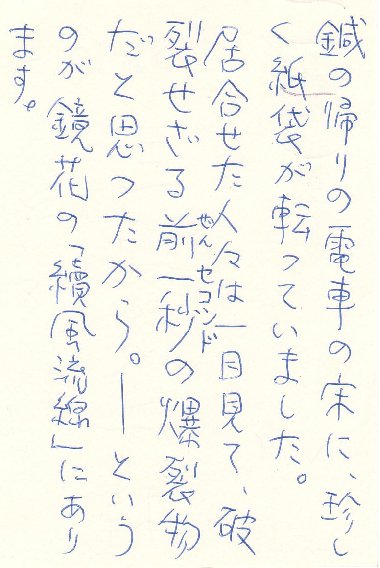 鍼の帰りの電車の床に、珍し
く紙袋が転っていました。
居合せた人々は一目見て、破
裂せざる前一秒の爆裂物
ぜんセコンド
だと思つたから。―という
のが鏡花の「續風流線」にあり
ます。